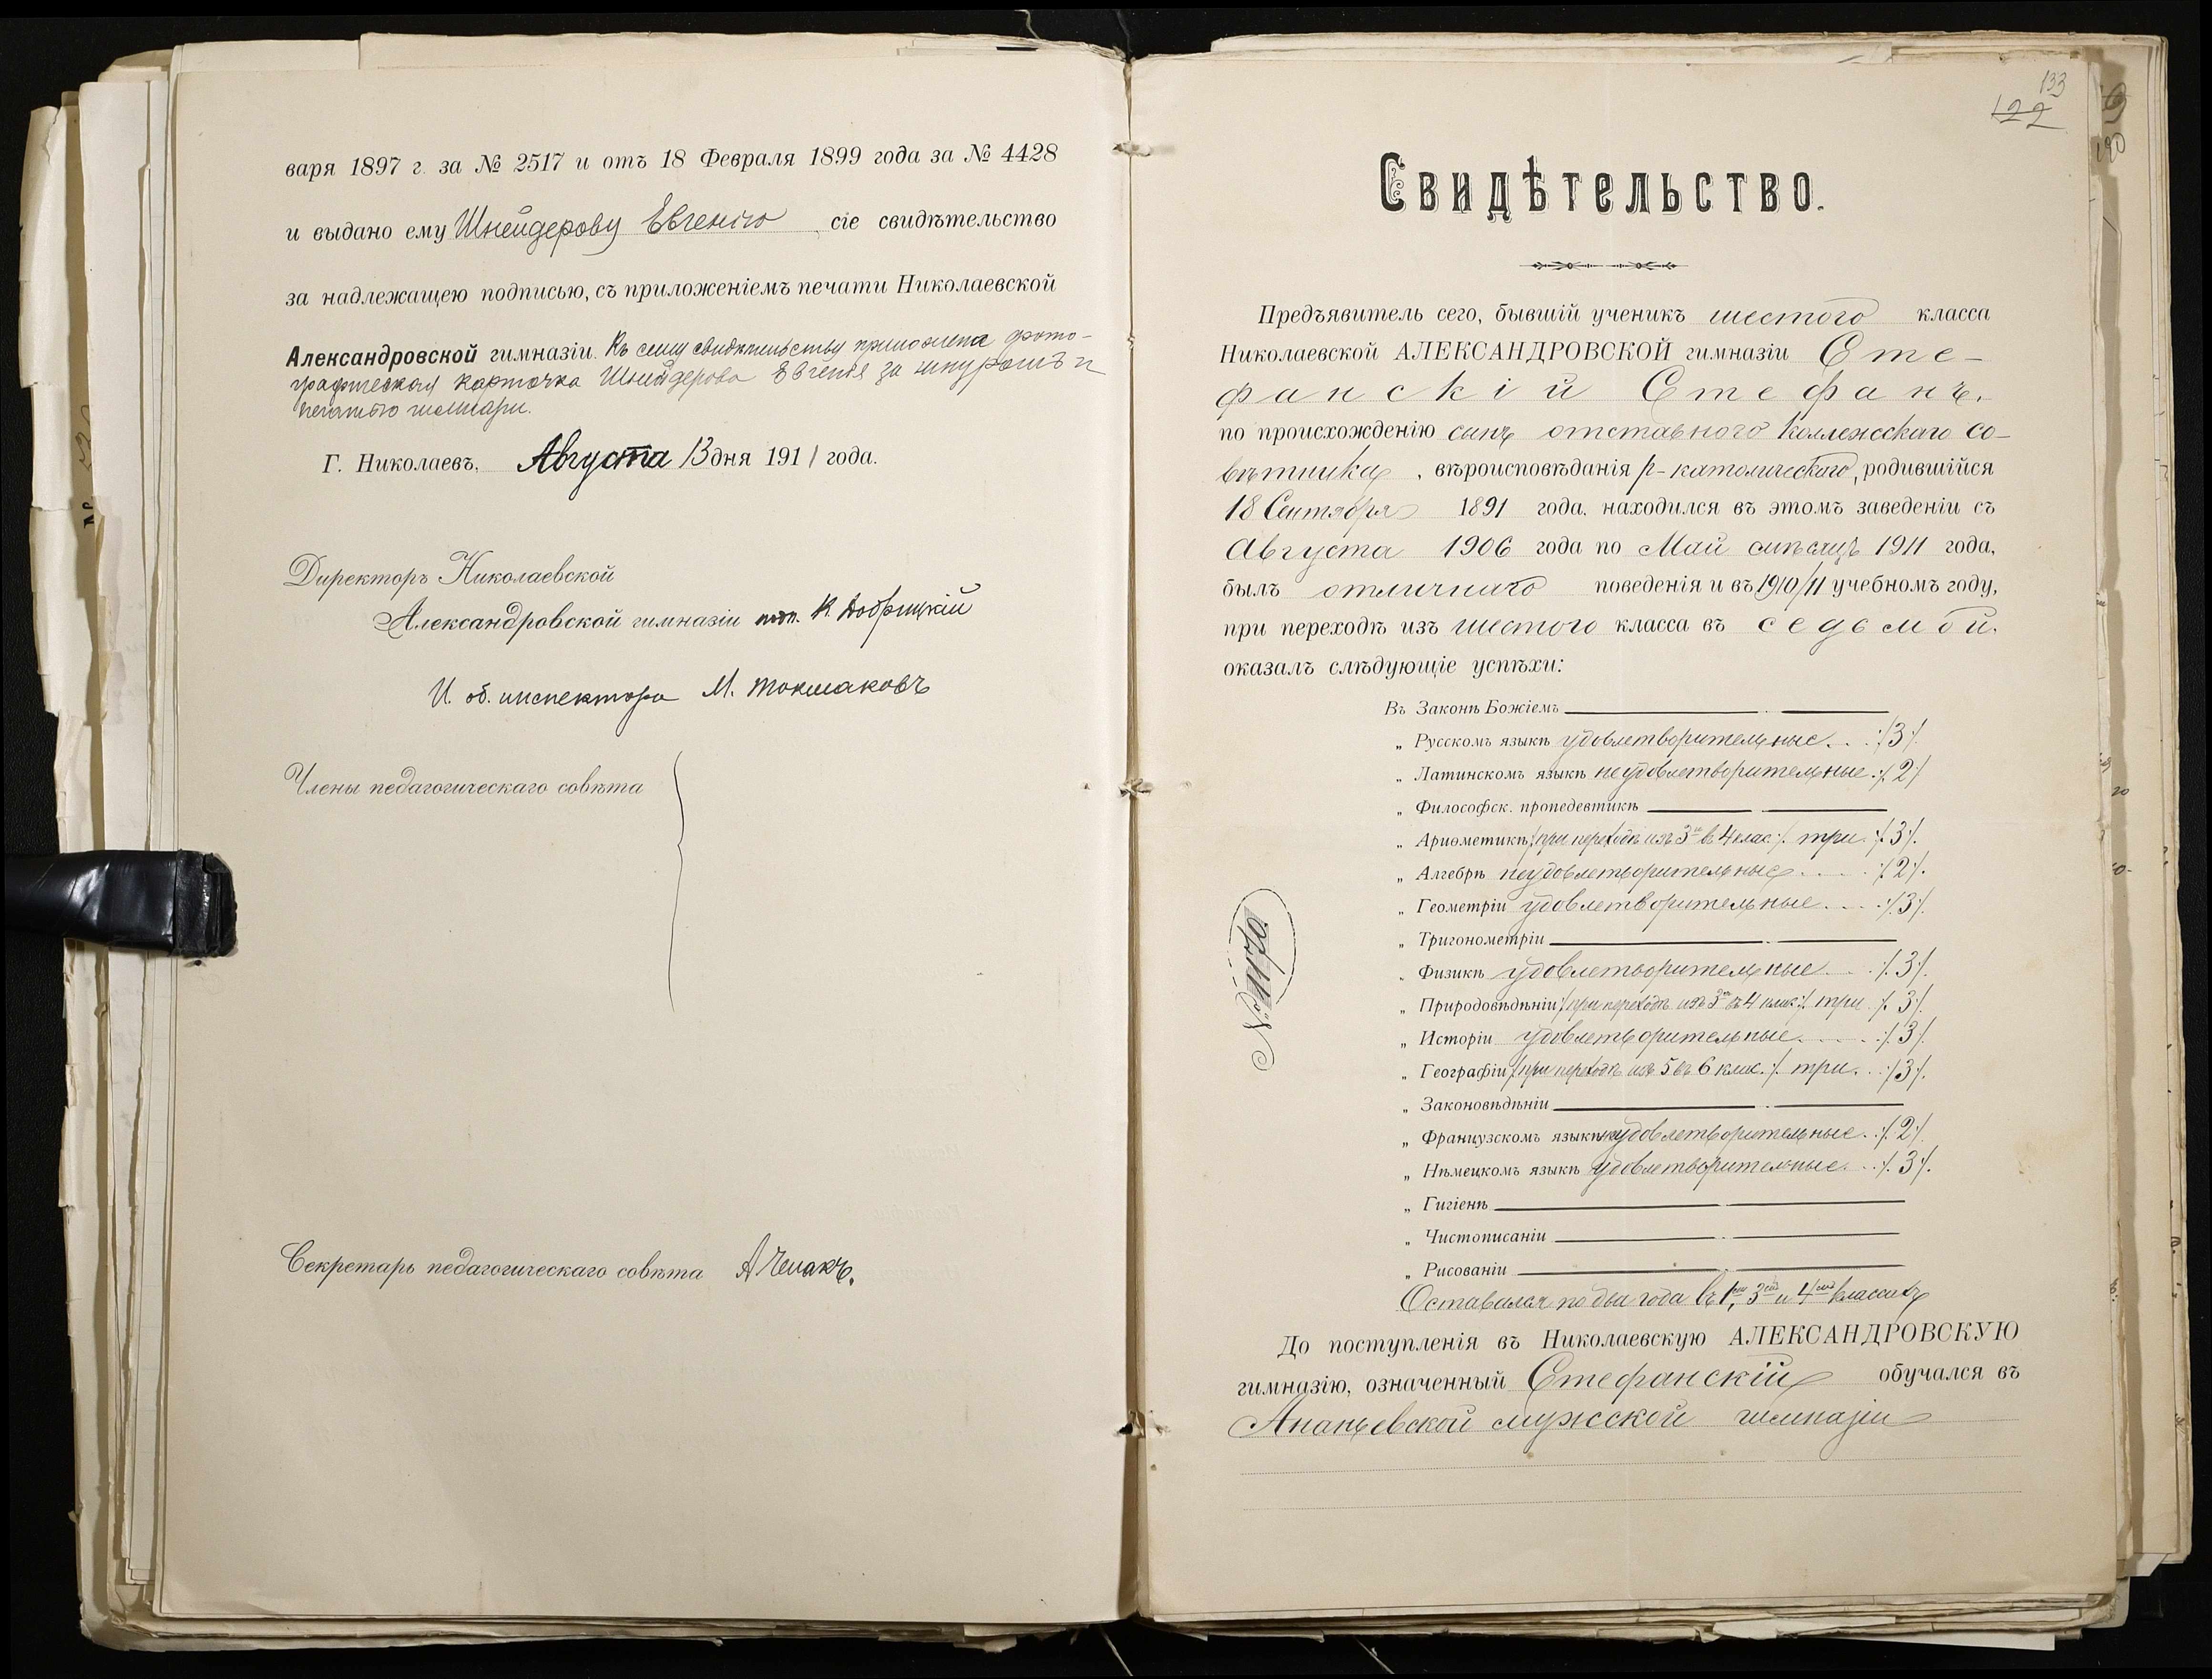 варя 1897 г. за № 2517 и отъ 18 Февраля 1899 года за № 4428
и выдано ему Шнейдерову Евгенію сіе свидѣтельство
за надлежащею подписью, съ приложеніемъ печати Николаевской
Александровской гимназіи. Къ сему свидѣтельству приложена фото-
графическая карточка Шнейдерова Евгенія за шнуромъ и
печатью гимназіи.
Г. Николаевъ, Августа 13 дня 1911 года.
Директоръ Николаевской
Александровской гимназіи подп. К. Добрицкій
И. об. инспектора М. Токмаковъ
Члены педагогическаго совѣта
Секретарь педагогическаго совѣта
133
122
Свидѣтельство.
Предъявитель сего, бывшій ученикъ шестого класса
Николаевской АЛЕКСАНДРОВСКОЙ гимназіи Сте-
фанскій Стефанъ,
по происхожденію сынъ отставного коллежскаго со-
вѣтника, вѣроисповѣданія р-католическаго, родившійся
18 Сентября 1891 года, находился въ этомъ заведеніи съ
Августа 1906 года по Май мѣсяцъ 1911 года,
былъ отличнаго поведенія и въ 1910/11 учебномъ году,
при переходѣ изъ шестого класса въ седьмой,
оказалъ слѣдующіе успѣхи:
Въ Законѣ Божіемъ
„ Русскомъ языкѣ удовлетворительные ./3/.
„ Латинскомъ языкѣ неудовлетворительные ./2/.
„ Философск. пропедевтикѣ
„ Ариѳметикѣ ./при переходѣ изъ 3го въ 4 клас./. три ./3/.
„ Алгебрѣ неудовлетворительные ./2/.
„ Геометріи удовлетворительные ./3/.
„ Тригонометріи
„ Физикѣ удовлетворительные ./3/.
„ Природовѣдѣніи ./при переходѣ изъ 3го въ 4 клас./. три ./3/.
„ Исторіи удовлетворительные ./3/.
„ Географіи ./при переходѣ изъ 5 въ 6 клас./. три ./3/.
„ Законовѣдѣніи
„ Французскомъ языкѣ неудовлетворительные ./2/.
„ Нѣмецкомъ языкѣ удовлетворительные ./3/.
„ Гигіенѣ
„ Чистописаніи
„ Рисованіи
Оставался по два года въ 1мъ, 3мъ и 4мъ классахъ
№ 1170
До поступленія въ Николаевскую АЛЕКСАНДРОВСКУЮ
гимназію, означенный Стефанскій обучался въ
Ананьевской мужской гимназіи